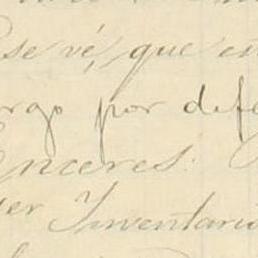 se vé, que es
rgo por defe
Enceres.
er Inventario